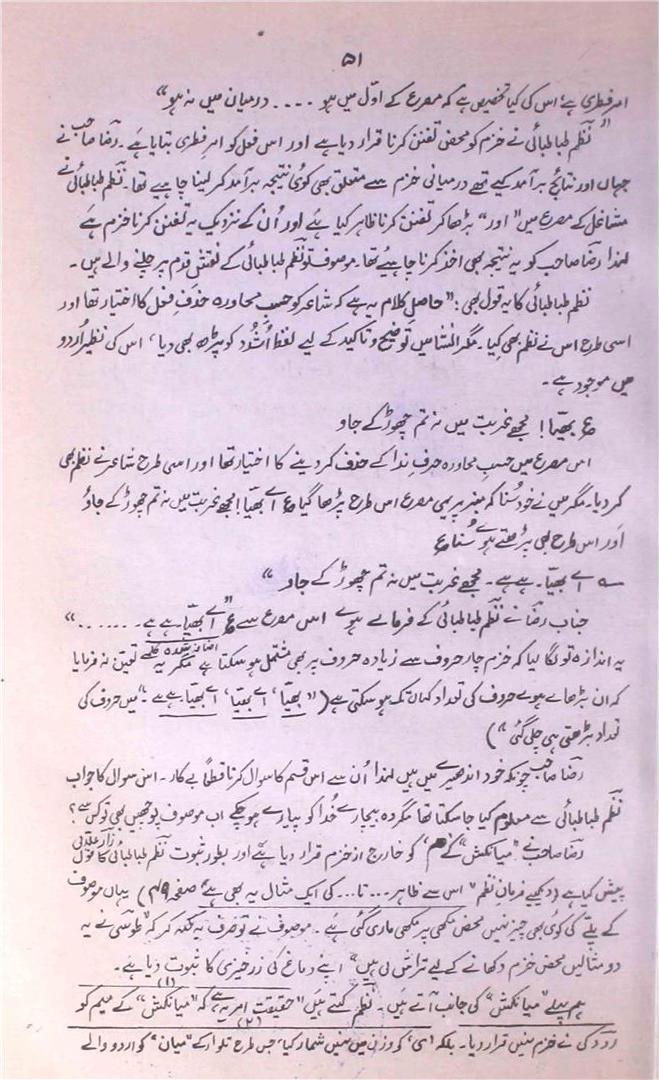 ۵۱
امرِ فطری ہے، اس کی کیا تخصیص ہے کہ مصرع کے اوّل میں ہو .... درمیان میں نہ ہو“
”نظم طباطبائی نے خزم کو محض تفنن کرنا قرار دیا ہے اور اس فعل کو امرِ فطری بتایا ہے۔ رضا صاحب نے
جہاں اور نتائج برآمد کیے تھے درمیانی خزم سے متعلق بھی کوئی نتیجہ برآمد کر لینا چاہیے تھا۔ نظم طباطبائی نے
مشاغل کے مصرع میں ”اور“ بڑھا کر تفنن کرنا ظاہر کیا ہے اور اُن کے نزدیک یہ تفنن کرنا خزم ہے
لہٰذا رضا صاحب کو یہ نتیجہ بھی اخذ کرنا چاہیے تھا۔ موصوف تو نظم طباطبائی کے نقشِ قدم پر چلنے والے ہیں۔
نظم طباطبائی کا یہ قول بھی: ”حاصلِ کلام یہ ہے کہ شاعر کو حسبِ محاورہ حذفِ فعل کا اختیار تھا اور
اسی طرح اس نے نظم بھی کیا۔ مگر انشا میں توضیح و تاکید کے لیے لفظ اُشدُد کو پڑھ بھی دیا، اس کی نظیر اُردو
میں موجود ہے۔
ع بھیّا! مجھے غربت میں نہ تم چھوڑ کے جاو
اس مصرع میں حسبِ محاورہ حرفِ ندا کے حذف کر دینے کا اختیار تھا اور اسی طرح شاعر نے نظم بھی
کر دیا۔ مگر میں نے خود سُنا کہ منبر پر یہی مصرع اس طرح پڑھا گیا ع اے بھیّا! مجھے غربت میں نہ تم چھوڑ کے جاؤ
اَور اس طرح بھی پڑھتے ہوے سُنا ع
ے اے بھیّا۔ ہے ہے۔ مجھے غربت میں نہ تم چھوڑ کے جاو“
جناب رضا نے نظم طباطبائی کے فرمائے ہوے اس مصرع سے ع ”اے بھیّا ہے ہے۔......“
یہ اندازہ تو لگا لیا کہ خزم چار حروف سے زیادہ حروف پر بھی مشتمل ہو سکتا ہے مگر یہ تعین نہ فرمایا
اضافہ شدہ کلمے
کہ ان بڑھاے ہوے حروف کی تعداد کہاں تک ہو سکتی ہے (”بھیّا، اے بھیّا، اے بھیّا ہے ہے۔“ میں حروف کی
تعداد بڑھتی ہی چلی گئی“)
رضا صاحب چونکہ خود اندھیرے میں ہیں لہٰذا اُن سے اس قسم کا سوال کرنا قطعاً بے کار۔ اس سوال کا جواب
نظم طباطبائی سے معلوم کیا جا سکتا تھا مگر وہ بیچارے خُدا کو پیارے ہو چکے اب موصوف پوچھیں بھی تو کس سے؟
رضا صاحب نے ”میانکش“ کے ’م‘ کو خارج از خزم قرار دیا ہے اور بطورِ ثبوت نظم طباطبائی کا قول
پیش کیا ہے (دیکھیے فرمانِ نظم ”اس سے ظاہر ... تا ... کی ایک مثال یہ بھی ہے“ صفحہ ۴۹) یہاں موصوف
کے پلّے کی کوئی بھی چیز نہیں محض مکھی پر مکھی ماری گئی ہے۔ موصوف نے تو صرف یہ کہہ کر کہ ”طوسی نے یہ
دو مثالیں محض خزم دکھانے کے لیے تراش لی ہیں“ اپنے دماغ کی زرخیزی کا ثبوت دیا ہے۔
ہم پہلے ”میانکش“ کی جانب آتے ہیں۔ نظم کہتے ہیں (۱) ”حقیقتِ امر یہ ہے کہ ”میانکش“ کے میم کو
رودکی نے خزم نہیں قرار دیا۔ (۲) بلکہ ’ی‘ کو وزن میں نہیں شمار کیا، جس طرح تلوار کے ”میان“ کو اردو والے